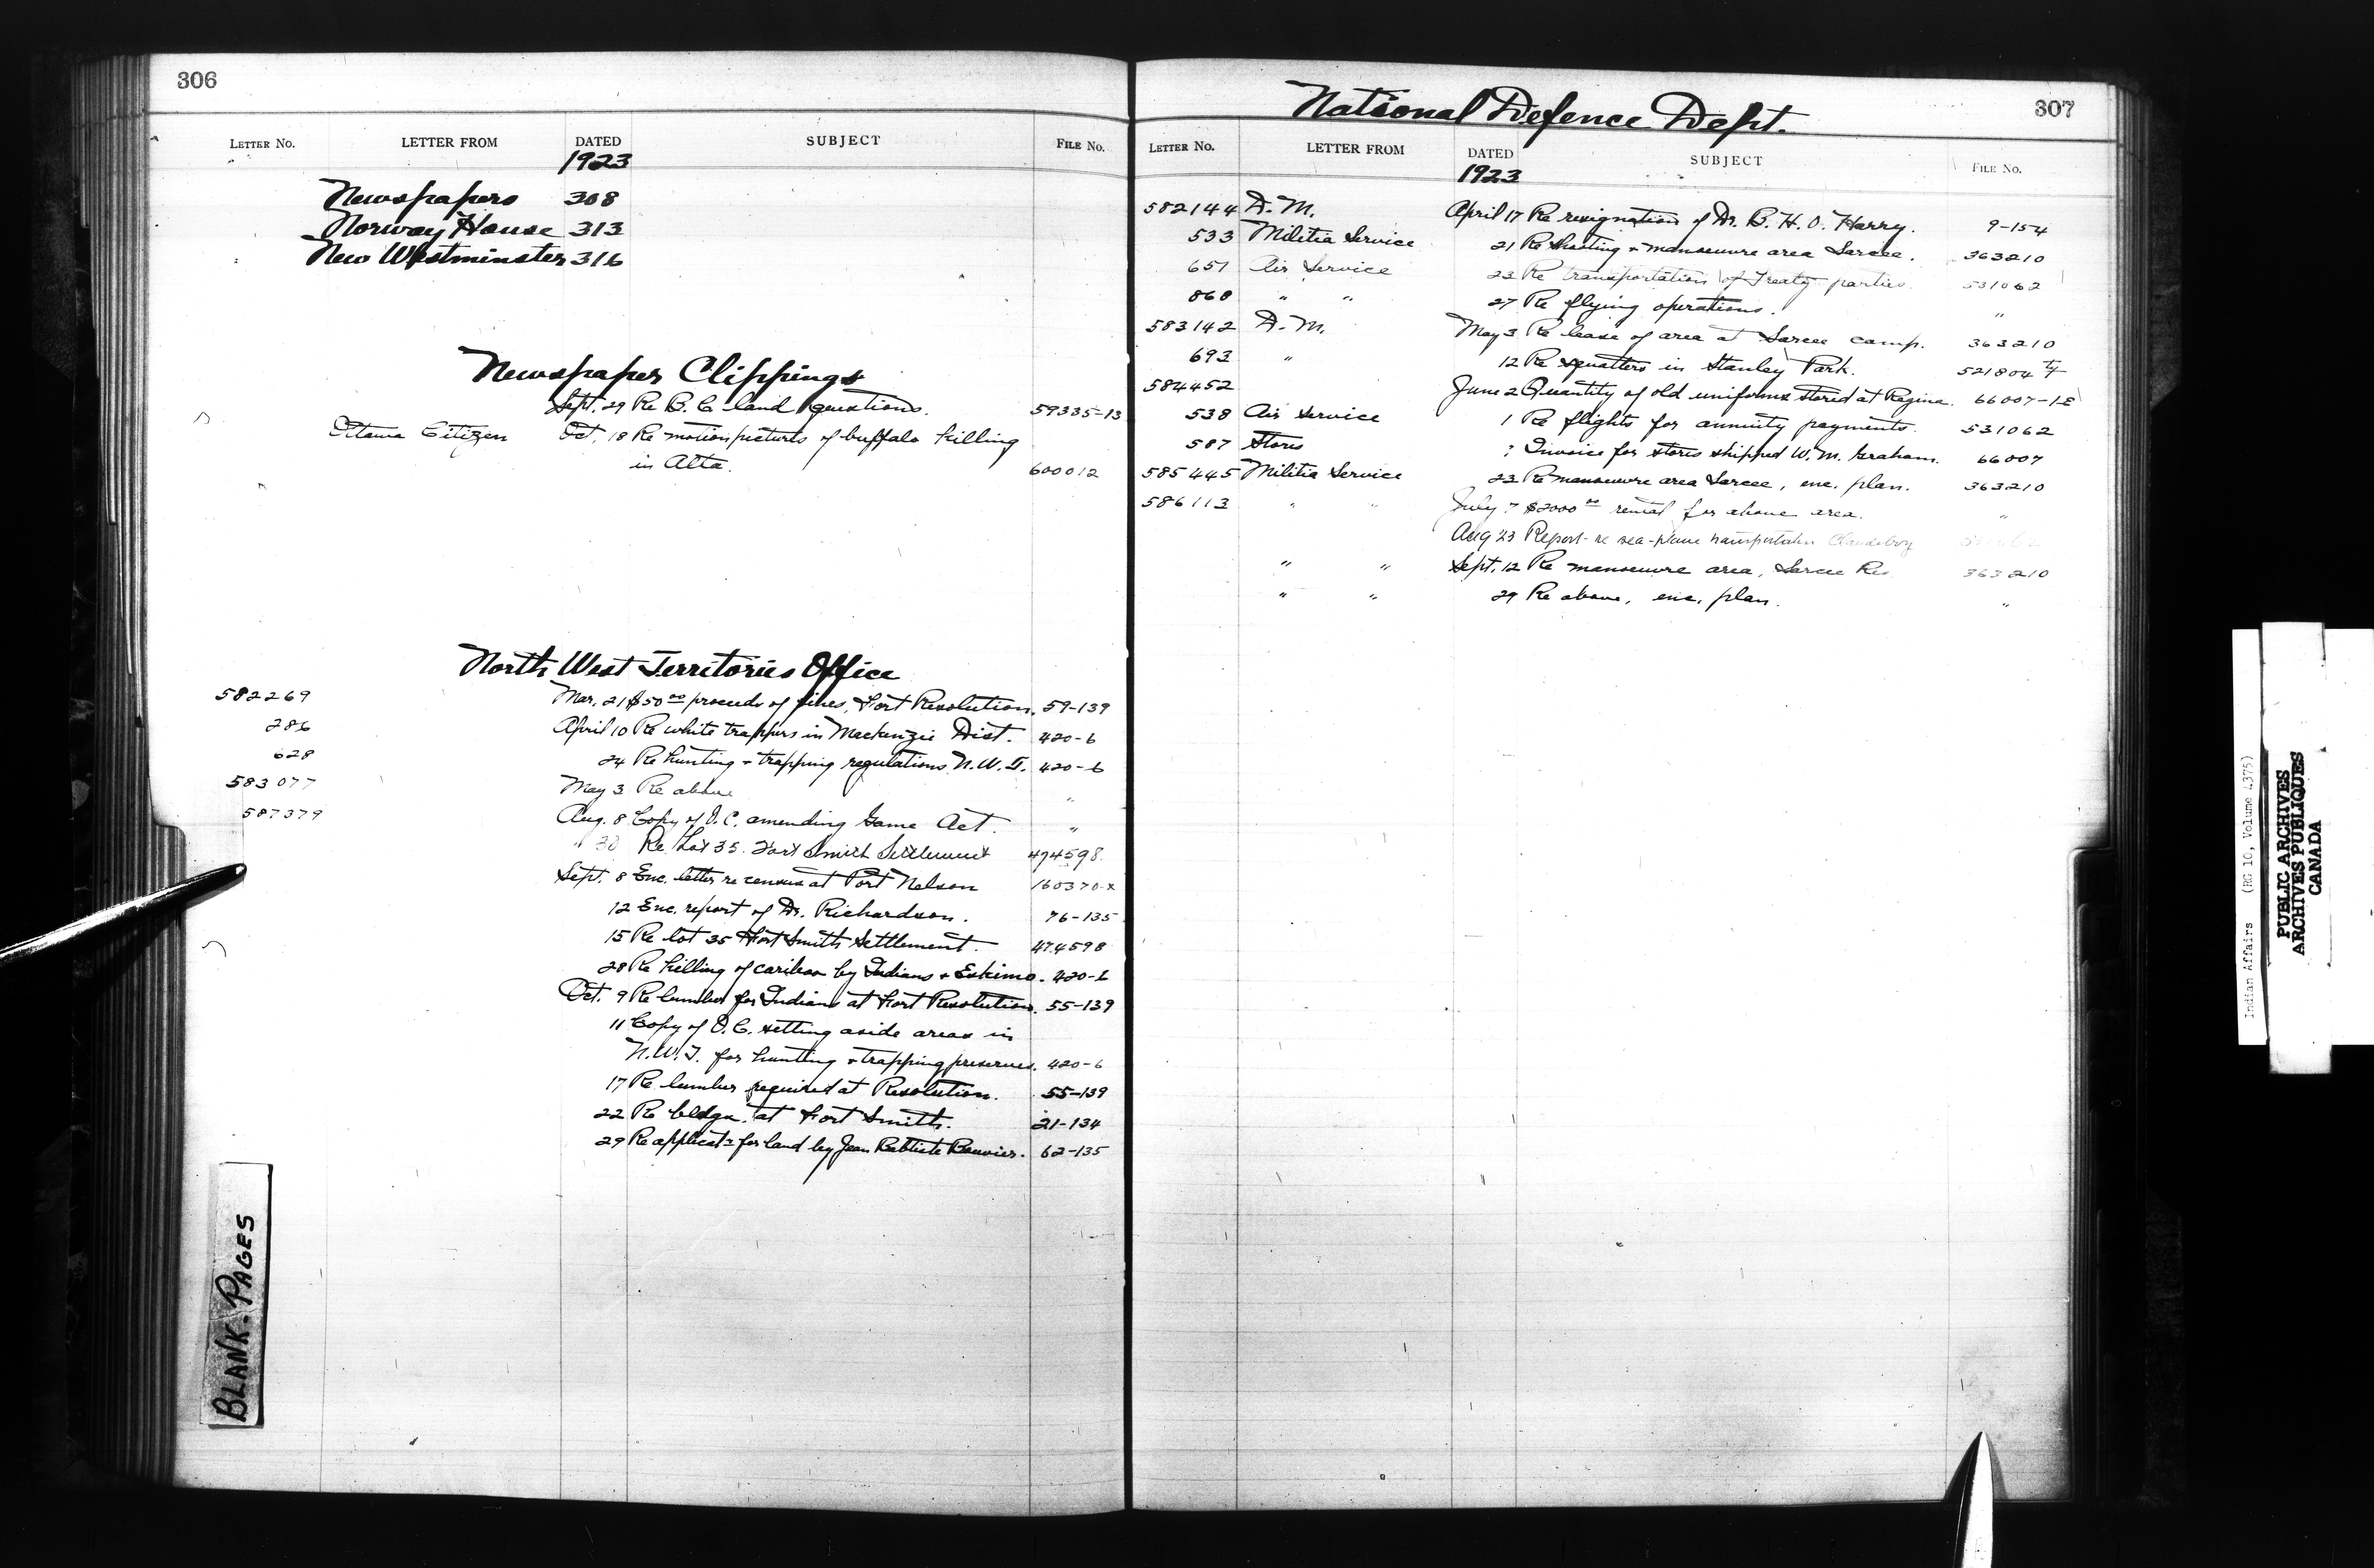 306
LETTER NO. LETTER FROM DATED SUBJECT FILE NO.
1923
Newspapers 308
Norway House 313
New Westminster 316
Newspaper Clippings
Sept. 29 Re B.C. land questions. 59335-13
Ottawa Citizen Oct. 18 Re motion pictures of buffalo killing
in Alta. 600012
North West Territories Office
582269 Mar. 21 $50.00 proceeds of fines, Fort Resolution. 59-139
286 April 10 Re white trappers in Mackenzie Dist. 420-6
628 24 Re hunting + trapping regulations N.W.T. 420-6
583077 May 3 Re above "
587379 Aug. 8 Copy of O.C. amending Game Act. "
" 30 Re Lot 35 Fort Smith Settlement 474598
Sept. 8 Enc. letter re census at Port Nelson 160370-x
12 Enc. report of Dr. Richardson. 76-135
15 Re lot 35 Fort Smith Settlement. 474598
28 Re killing of caribou by Indians + Eskimo. 420-6
Oct. 9 Re lumber for Indians at Fort Resolution. 55-139
11 Copy of O.C. setting aside areas in
N.W.T. for hunting + trapping preserves. 420-6
17 Re lumber required at Resolution. 55-139
22 Re bldgs. at Fort Smith. 21-134
29 Re applicatn for land by Jean Babtiste 62-135
BLANK PAGES
National Defence Dept.
307
LETTER NO. LETTER FROM DATED SUBJECT FILE NO.
1923
582144 D.M. April 17 Re resignation of Dr. B.H.O. Harry. 9-154
533 Militia Service 21 Re shooting + manoeuvre area Sarcee. 363210
651 Air Service 23 Re transportation of Treaty parties 531062
868 " " 27 Re flying operations. "
583142 D.M. May 3 Re lease of area at Sarcee Camp. 363210
693 " 12 Re squatters in Stanley Park. 521804
584452 June 2 Quantity of old uniforms stored at Regina. 66007-1E
538 Air Service 1 Re flights for annuity payments. 531062
587 Stores Invoice for stores shipped W.M. Graham. 66007
585445 Militia Service 23 Re manoeuvre area Sarcee, enc. plan. 363210
586113 " " July 7 $2000.00 rental for above area. "
Aug 23 Report re sea-plane transportation Clandeboye
" " Sept. 12 Re manoeuvre area, Sarcee Res. 363210
" " 29 Re above, enc. plan. "
Indian Affairs (RG 10, Volume 4375)
PUBLIC ARCHIVES
ARCHIVES PUBLIQUES
CANADA